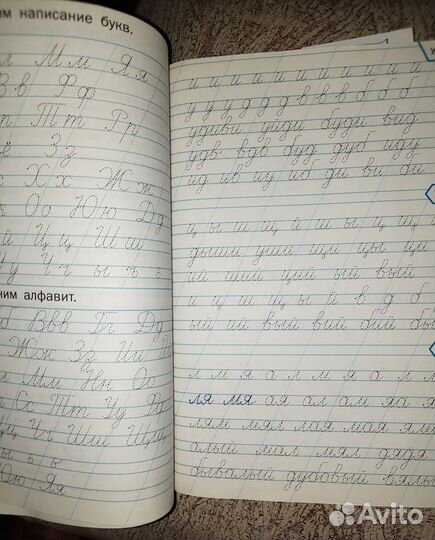 им написание букв.
л М м Я я
З в Ф ф
п Т т Р р
ё З з
Х х Ж ж
к О о Ю ю Д д
й Ц ц Ш ш
У у Ч ч ы ъ ь
ним алфавит.
б В в в Г г Д д
Ж ж З з И и Й
л М м Н н О о
С с Т т У у Ф ф
Ц ц Ч ч Ш ш Щ щ
ъ ы ь
Ю ю Я я
и и и и и и и и и и и
у у у д д д в в в б б б
удиви уйди буди вид
удв вдв буд дуб иду
ид ив иу иб ди ви би
ц ы ш щ й ш ы ц щ
дыши уши щи цы ци
ий ший ций ый вый
и ц ш щ ы й в д б
ый ий вый вий бий бы
л м я а л м я а л
ля мя ая ал ам яа я
лям мял лая мая ям
алый мал мял дядя
бывалый дубовый вялы
Avito